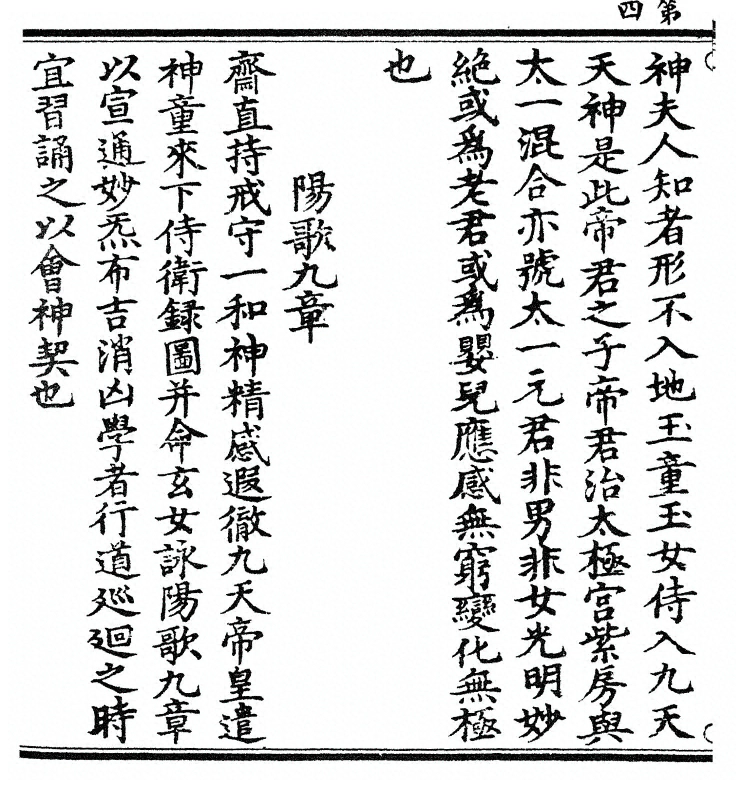 第四
神夫人知者形不入地玉童玉女侍入九天
天神是此帝君之子帝君治太極宫紫房與
太一混合亦號太一元君非男非女光明妙
絶或爲老君或爲嬰兒應感無窮變化無極
也
陽歌九章
齋直持戒守一和神精感遐徹九天帝皇遣
神童來下侍衛録圖并命玄女詠陽歌九章
以宣通妙炁布吉消凶學者行道廵迴之時
宜習誦之以會神契也